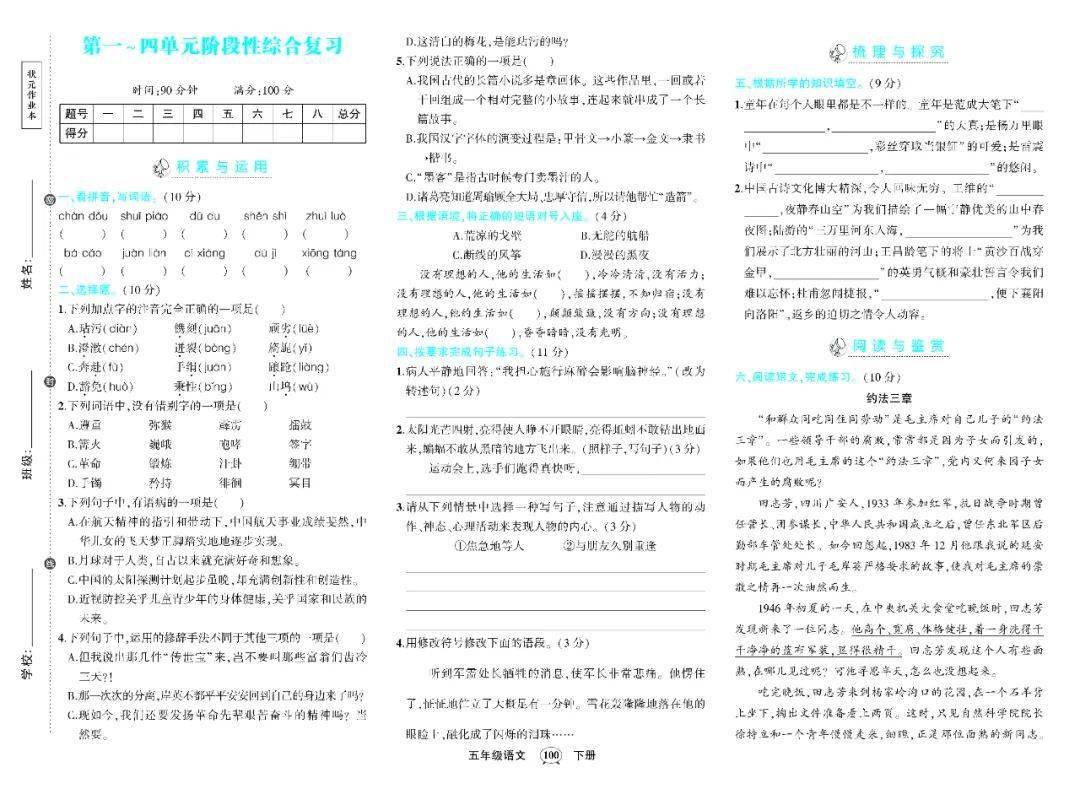 第一~四单元阶段性综合复习
时间:90分钟 满分:100分
题号 一 二 三 四 五 六 七 八 总分
得分
状元作业本
姓名:
班级:
学校:
密
封
线
积累与运用
一、看拼音,写词语。(10分)
chàn dǒu shuǐ piáo dù cu shēn shì zhuì luò
( ) ( ) ( ) ( ) ( )
bá cǎo juàn lián cì xiàng cù jì xiōng táng
( ) ( ) ( ) ( ) ( )
二、选择题。(10分)
1.下列加点字的注音完全正确的一项是( )
A.玷污(diàn) 镌刻(juān) 顽劣(lüè)
B.澄澈(chén) 迸裂(bèng) 旖旎(yǐ)
C.奔赴(fù) 手绢(juàn) 踉跄(liàng)
D.豁免(huō) 秉性(bǐng) 山坞(wù)
2.下列词语中,没有错别字的一项是( )
A.遵重 弥猴 霹雳 擂鼓
B.篝火 巍峨 咆哮 签字
C.革命 锻炼 汗卦 绷带
D.手镯 矜持 徘徊 冥目
3.下列句子中,有语病的一项是( )
A.在航天精神的指引和带动下,中国航天事业成绩斐然,中
华儿女的飞天梦正脚踏实地地逐步实现。
B.月球对于人类,自古以来就充满好奇和想象。
C.中国的太阳探测计划起步虽晚,却充满创新性和创造性。
D.近视防控关乎儿童青少年的身体健康,关乎国家和民族的
未来。
4.下列句子中,运用的修辞手法不同于其他三项的一项是( )
A.但我说出那几件“传世宝”来,岂不要叫那些富翁们齿冷
三天?!
B.那一次次的分离,岸英不都平平安安回到自己的身边来了吗?
C.现如今,我们还要发扬革命先辈艰苦奋斗的精神吗?当
然要。
D.这清白的梅花,是能玷污的吗?
5.下列说法正确的一项是( )
A.我国古代的长篇小说多是章回体。这些作品里,一回或若
干回组成一个相对完整的小故事,连起来就串成了一个长
篇故事。
B.我国汉字字体的演变过程是:甲骨文→小篆→金文→隶书
→楷书。
C.“墨客”是指古时候专门卖墨汁的人。
D.诸葛亮知道周瑜顾全大局,忠厚守信,所以请他帮忙“造箭”。
三、根据语境,将正确的短语对号入座。(4分)
A.荒凉的戈壁 B.无舵的航船
C.断线的风筝 D.漫漫的黑夜
没有理想的人,他的生活如( ),冷冷清清,没有活力;
没有理想的人,他的生活如( ),摇摇摆摆,不知归宿;没有
理想的人,他的生活如( ),颠颠簸簸,没有方向;没有理想
的人,他的生活如( ),昏昏暗暗,没有光明。
四、按要求完成句子练习。(11分)
1.病人平静地回答:“我担心施行麻醉会影响脑神经。”(改为
转述句)(2分)
2.太阳光芒四射,亮得使人睁不开眼睛,亮得蚯蚓不敢钻出地面
来,蝙蝠不敢从黑暗的地方飞出来。(照样子,写句子)(3分)
运动会上,选手们跑得真快呀,
3.请从下列情景中选择一种写句子,注意通过描写人物的动
作、神态、心理活动来表现人物的内心。(3分)
①焦急地等人 ②与朋友久别重逢
4.用修改符号修改下面的语段。(3分)
听到军需处长牺牲的消息,使军长非常悲痛。他愣住
了,怔怔地伫立了大概是有一分钟。雪花轰隆隆地落在他的
眼睑上,融化成了闪烁的泪珠……
五年级语文 100 下册
梳理与探究
五、根据所学的知识填空。(9分)
1.童年在每个人眼里都是不一样的。童年是范成大笔下“
,”的天真;是杨万里眼
中“,彩丝穿取当银钲”的可爱;是雷震
诗中“,”的悠闲。
2.中国古诗文化博大精深,令人回味无穷。王维的“
,夜静春山空”为我们描绘了一幅宁静优美的山中春
夜图;陆游的“三万里河东入海,”为我
们展示了北方壮丽的河山;王昌龄笔下的将士“黄沙百战穿
金甲,”的英勇气概和豪壮誓言令我们
难以忘怀;杜甫忽闻捷报,“,便下襄阳
向洛阳”,返乡的迫切之情令人动容。
阅读与鉴赏
六、阅读短文,完成练习。(10分)
约法三章
“和群众同吃同住同劳动”是毛主席对自己儿子的“约法
三章”。一些领导干部的腐败,常常都是因为子女而引发的,
如果他们也用毛主席的这个“约法三章”,党内又何来因子女
而产生的腐败呢?
田志芳,四川广安人,1933年参加红军,抗日战争时期曾
任营长、团参谋长,中华人民共和国成立之后,曾任东北军区后
勤部车管处处长。如今回想起,1983年12月他跟我说的延安
时期毛主席对儿子毛岸英严格要求的故事,使我对毛主席的崇
敬之情再一次油然而生。
1946年初夏的一天,在中央机关大食堂吃晚饭时,田志芳
发现新来了一位同志。他高个、宽肩、体格健壮,着一身洗得干
干净净的蓝布军装,显得很精干。田志芳发现这个人有些面
熟,在哪儿见过呢?可他寻思半天,怎么也没想起来。
吃完晚饭,田志芳来到杨家岭沟口的花园,在一个石羊背
上坐下,掏出文件准备看上两页。这时,只见自然科学院院长
徐特立和一个青年慢慢走来,细瞧,正是那位面熟的新同志。